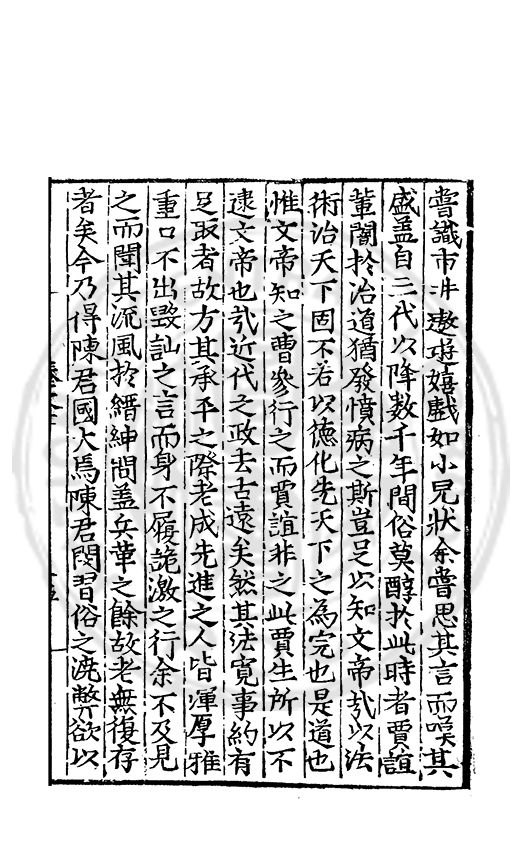 嘗識市井遨遊嬉戲如小兒狀余嘗思其言而嘆其
盛蓋自三代以降數千年間俗莫醇扵此時者賈誼
輩闇扵治道猶發憤病之斯豈足以知文帝㢤以法
術治天下固不若以德化先天下之為完也是道也
惟文帝知之曹參行之而賈誼非之此賈生所以不
逮文帝也㢤近代之政去古遠矣然其法寬事約有
足取者故方其承平之際老成先進之人皆渾厚雅
重口不出毀訕之言而身不履詭激之行余不及見
之而聞其流風扵縉紳間蓋兵革之餘故老無復存
者矣今乃得陳君國大焉陳君閔習俗之澆弊欲以